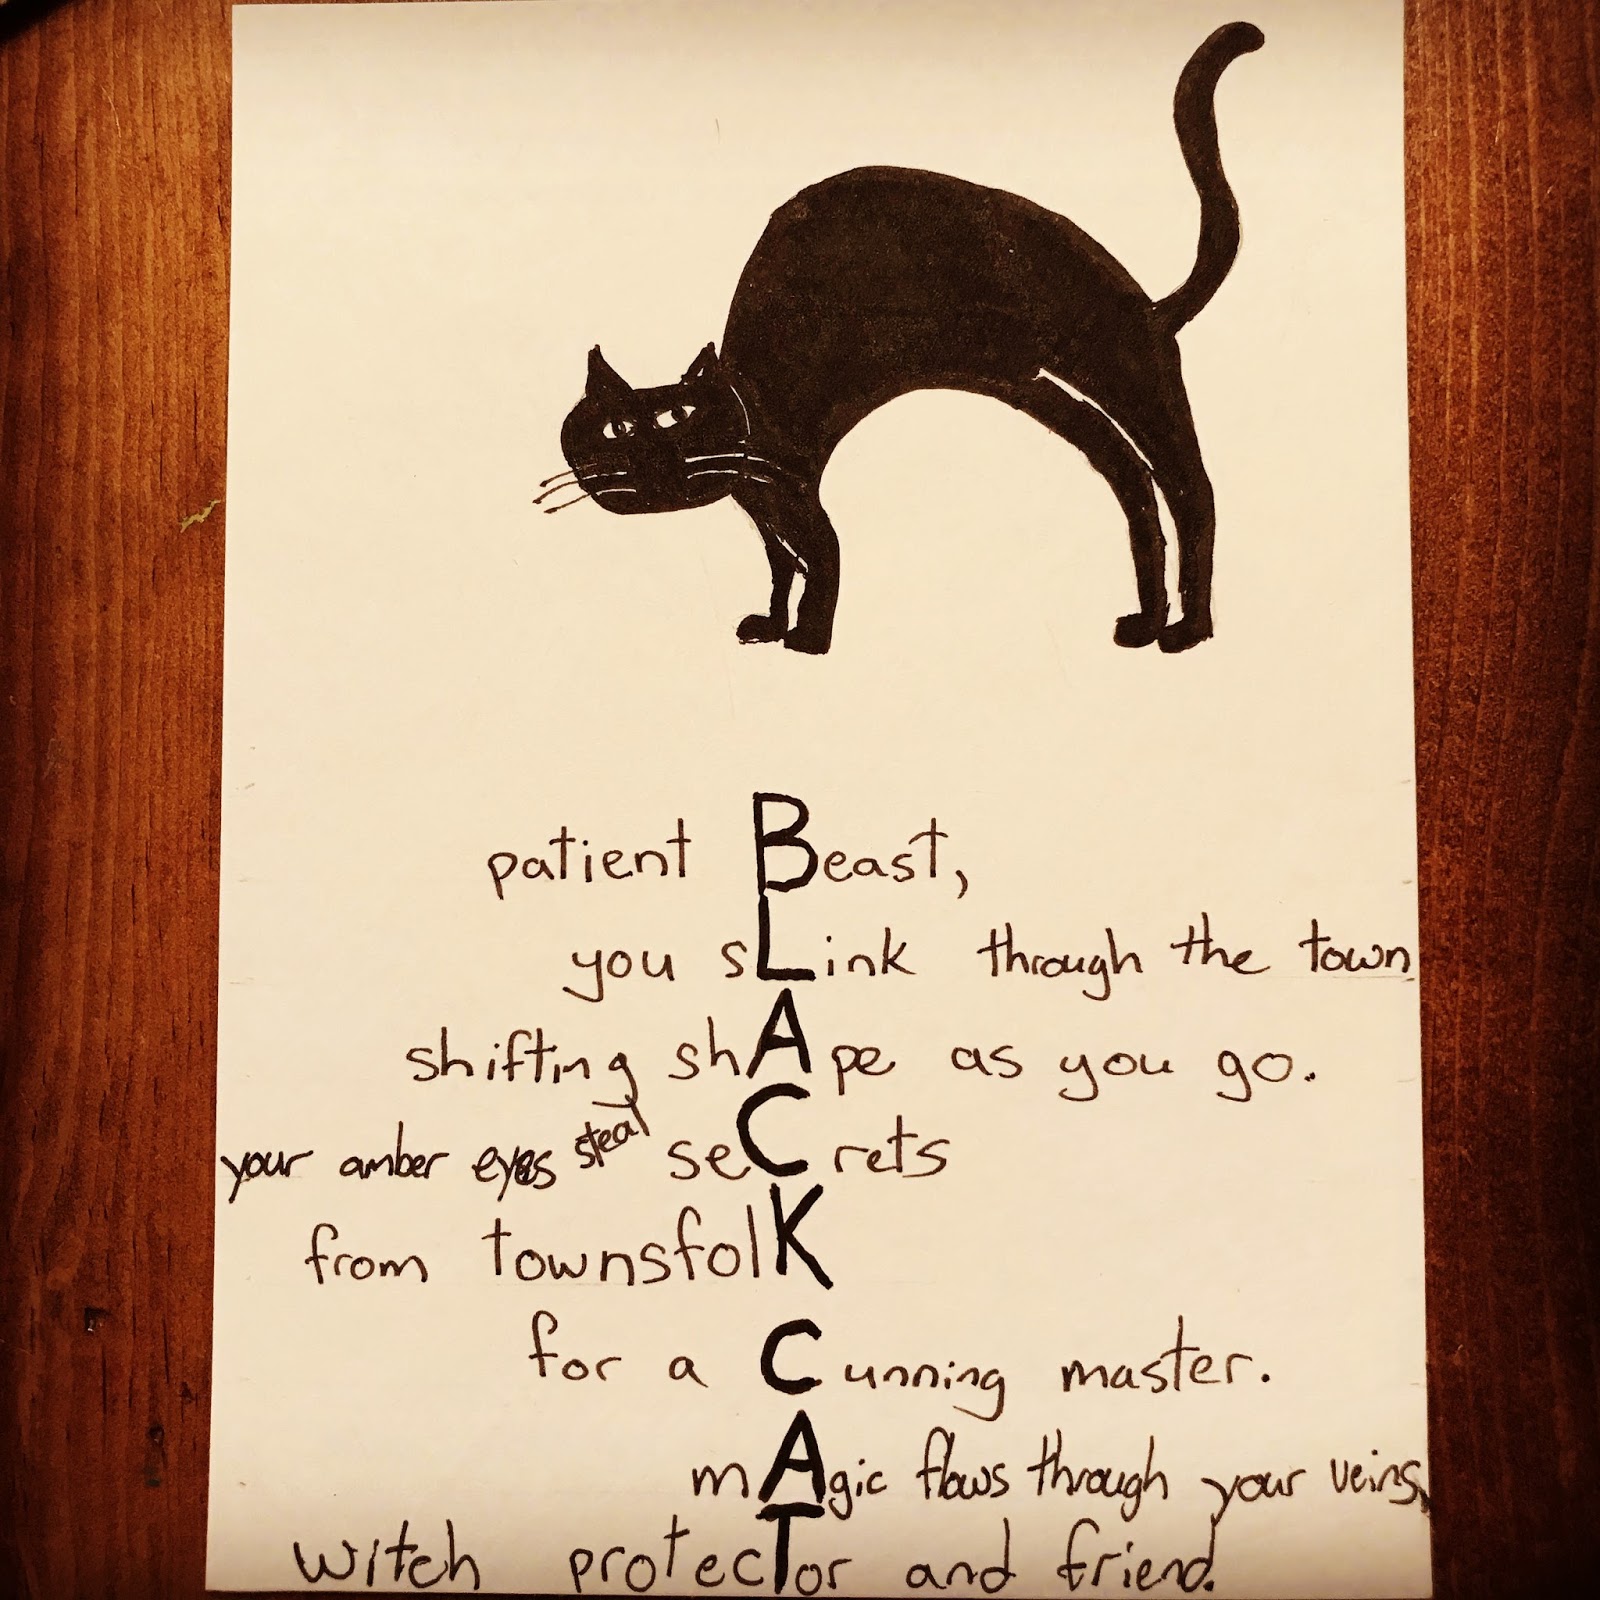 patient Beast,
you sLink through the town
shifting shApe as you go.
your amber eyes steal seCrets
from townsfolK
for a Cunning master.
mAgic flows through your veins,
witch protecTor and friend.